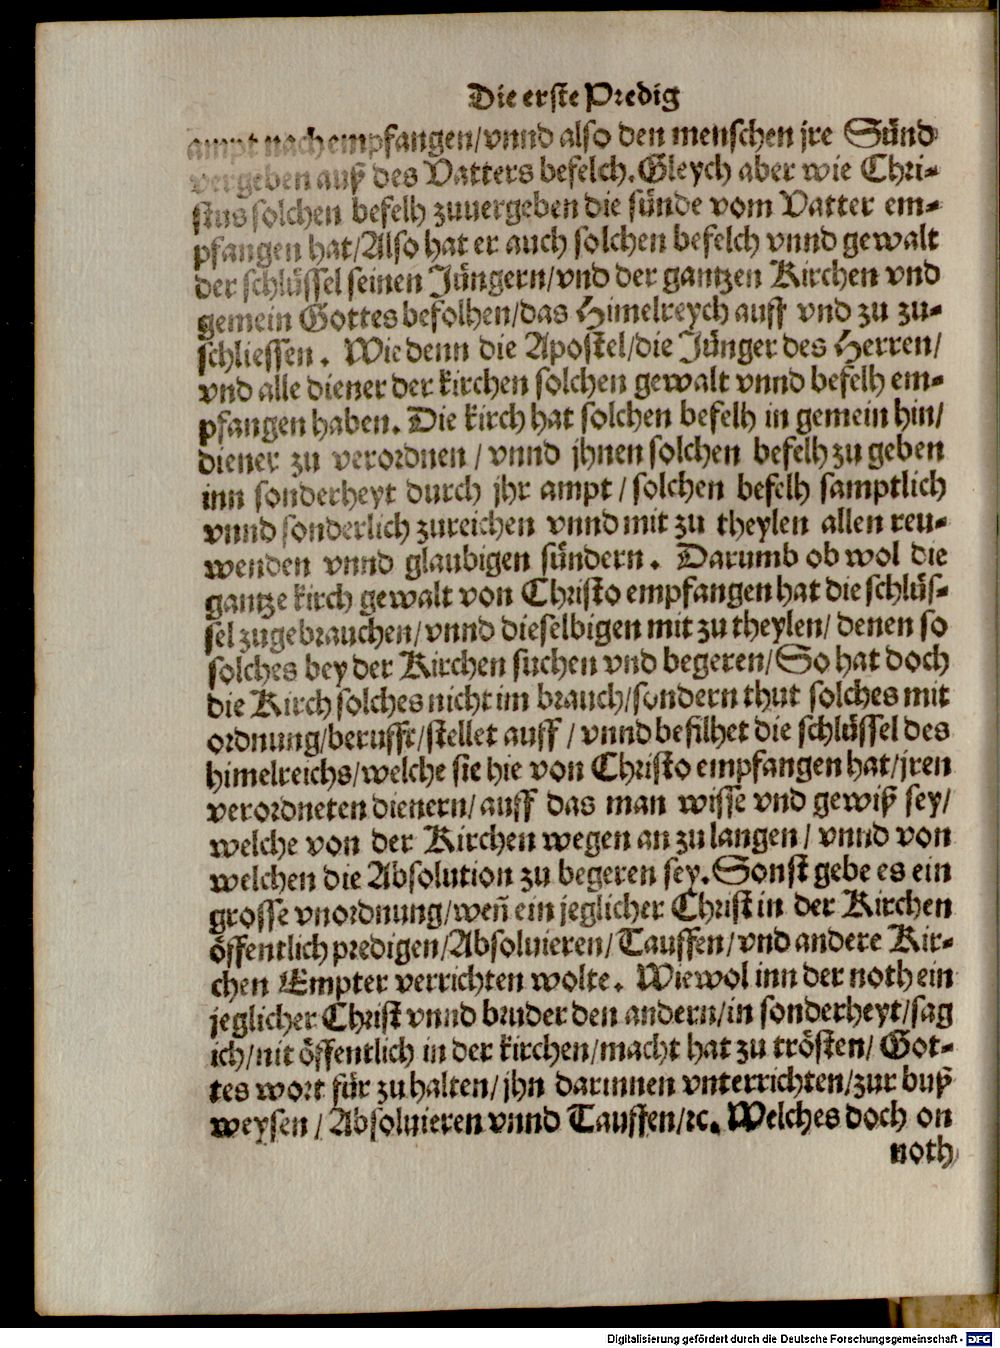 Die erste Predig
ampt nach empfangen/vnnd also den menschen jre Sünd
vergeben auß des Vatters befelch. Gleych aber wie Chri-
stus solchen befelh zuuergeben die sünde vom Vatter em-
pfangen hat/Also hat er auch solchen befelch vnnd gewalt
der schlüssel seinen Jüngern/vnd der gantzen Kirchen vnd
gemein Gottes befolhen/das Himelreych auff vnd zu zu-
schliessen. Wie denn die Apostel/die Jünger des Herren/
vnd alle diener der kirchen solchen gewalt vnnd befelh em-
pfangen haben. Die kirch hat solchen befelh in gemein hin/
diener zu verordnen / vnnd jhnen solchen befelh zu geben
inn sonderheyt durch jhr ampt / solchen befelh samptlich
vnnd sonderlich zureichen vnnd mit zu theylen allen reu-
wenden vnnd glaubigen sündern. Darumb ob wol die
gantze kirch gewalt von Christo empfangen hat die schlüs-
sel zugebrauchen/vnnd dieselbigen mit zu theylen/ denen so
solches bey der Kirchen suchen vnd begeren/So hat doch
die Kirch solches nicht im brauch/sondern thut solches mit
ordnung/berufft/stellet auff / vnnd befilhet die schlüssel des
himelreichs/welche sie hie von Christo empfangen hat/jren
verordneten dienern/auff das man wisse vnd gewiß sey/
welche von der Kirchen wegen an zu langen / vnnd von
welchen die Absolution zu begeren sey. Sonst gebe es ein
grosse vnordnung/weñ ein jeglicher Christ in der Kirchen
öffentlich predigen/Absoluieren/Tauffen/vnd andere Kir-
chen Empter verrichten wolte. Wiewol inn der noth ein
jeglicher Christ vnnd bruder den andern/in sonderheyt/sag
ich/nit öffentlich in der kirchen/macht hat zu trösten/ Got-
tes wort für zu halten/jhn darinnen vnterrichten/zur buß
weysen / Absoluieren vnnd Tauffen/ꝛc. Welches doch on
noth
Digitalisierung gefördert durch die Deutsche Forschungsgemeinschaft - DFG